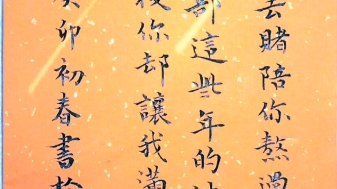 賭陪你熬過
都這些年的
你卻讓我滿
卯初春書於